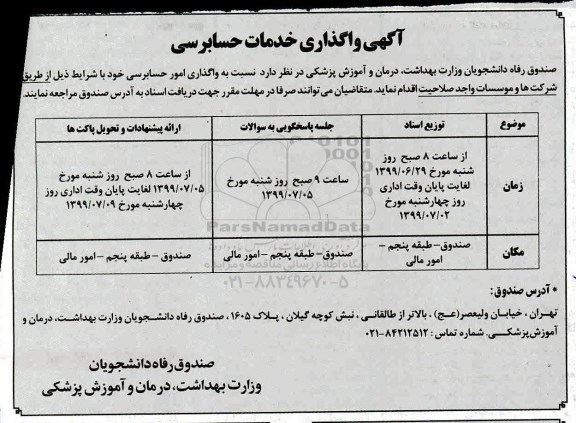 آگهی واگذاری خدمات حسابرسی
صندوق رفاه دانشجویان وزارت بهداشت، درمان و آموزش پزشکی در نظر دارد نسبت به واگذاری امور حسابرسی خود با شرایط ذیل از طریق
شرکت ها و موسسات واجد صلاحیت اقدام نماید. متقاضیان می توانند صرفا در مهلت مقرر جهت دریافت اسناد به آدرس صندوق مراجعه نمایند.
موضوع توزیع اسناد جلسه پاسخگویی به سوالات ارائه پیشنهادات و تحویل پاکت ها
زمان
از ساعت ۸ صبح روز
شنبه مورخ ۱۳۹۹/۰۶/۲۹
لغایت پایان وقت اداری
روز چهارشنبه مورخ
۱۳۹۹/۰۷/۰۲
ساعت ۹ صبح روز شنبه مورخ
۱۳۹۹/۰۷/۰۵
از ساعت ۸ صبح روز شنبه مورخ
۱۳۹۹/۰۷/۰۵ لغایت پایان وقت اداری روز
چهارشنبه مورخ ۱۳۹۹/۰۷/۰۹
مکان
صندوق – طبقه پنجم –
امور مالی
صندوق – طبقه پنجم – امور مالی
صندوق – طبقه پنجم – امور مالی
ParsNamadData
پایگاه اطلاع رسانی مناقصه و مزایده
۰۲۱-۸۸۳۴۹۶۷۰-۵
* آدرس صندوق:
تهران ، خیابان ولیعصر(عج) ، بالاتر از طالقانی ، نبش کوچه گیلان ، پلاک ۱۶۰۵ ، صندوق رفاه دانشجویان وزارت بهداشت، درمان و
آموزش پزشکی. شماره تماس : ۸۴۲۱۲۵۱۲-۰۲۱
صندوق رفاه دانشجویان
وزارت بهداشت، درمان و آموزش پزشکی